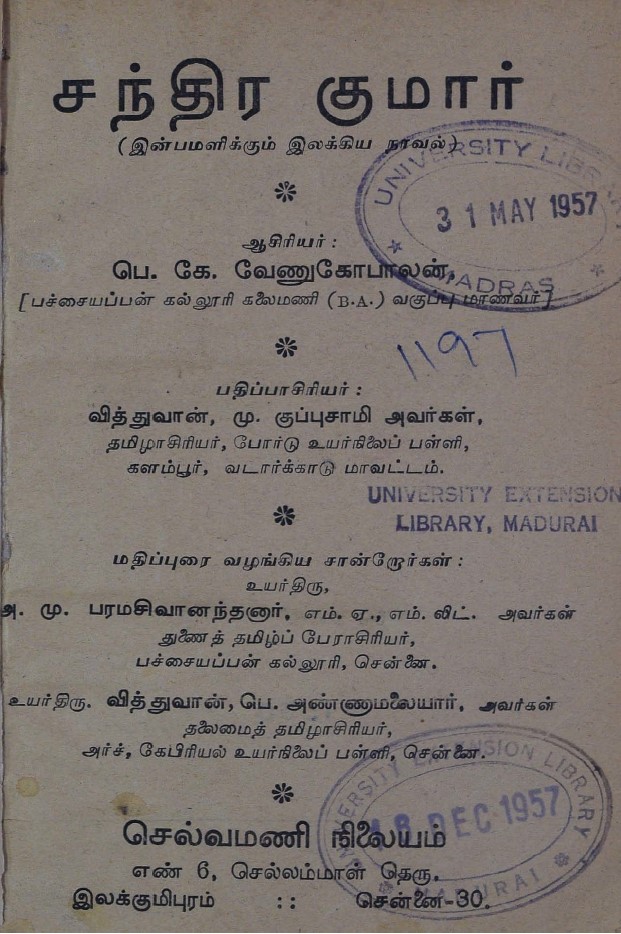 சந்திர குமார்
(இன்பமளிக்கும் இலக்கிய நாவல்)
UNIVERSITY LIBRARY
31 MAY 1957
MADRAS
ஆசிரியர் :
பெ. கே. வேணுகோபாலன்,
[பச்சையப்பன் கல்லூரி கலைமணி (B.A.) வகுப்பு மாணவர்]
1197
பதிப்பாசிரியர் :
வித்துவான், மு. குப்புசாமி அவர்கள்,
தமிழாசிரியர், போர்டு உயர்நிலைப் பள்ளி,
களம்பூர், வடார்க்காடு மாவட்டம்.
UNIVERSITY EXTENSION
LIBRARY, MADURAI
மதிப்புரை வழங்கிய சான்றோர்கள் :
உயர்திரு,
அ. மு. பரமசிவானந்தனார், எம். ஏ., எம். லிட். அவர்கள்
துணைத் தமிழ்ப் பேராசிரியர்,
பச்சையப்பன் கல்லூரி, சென்னை.
உயர்திரு. வித்துவான், பெ. அண்ணாமலையார், அவர்கள்
தலைமைத் தமிழாசிரியர்,
அர்ச், கேபிரியல் உயர்நிலைப் பள்ளி, சென்னை.
UNIVERSITY EXTENSION LIBRARY
18 DEC 1957
MADURAI
செல்வமணி நிலையம்
எண் 6, செல்லம்மாள் தெரு,
இலக்குமிபுரம் :: சென்னை-30.